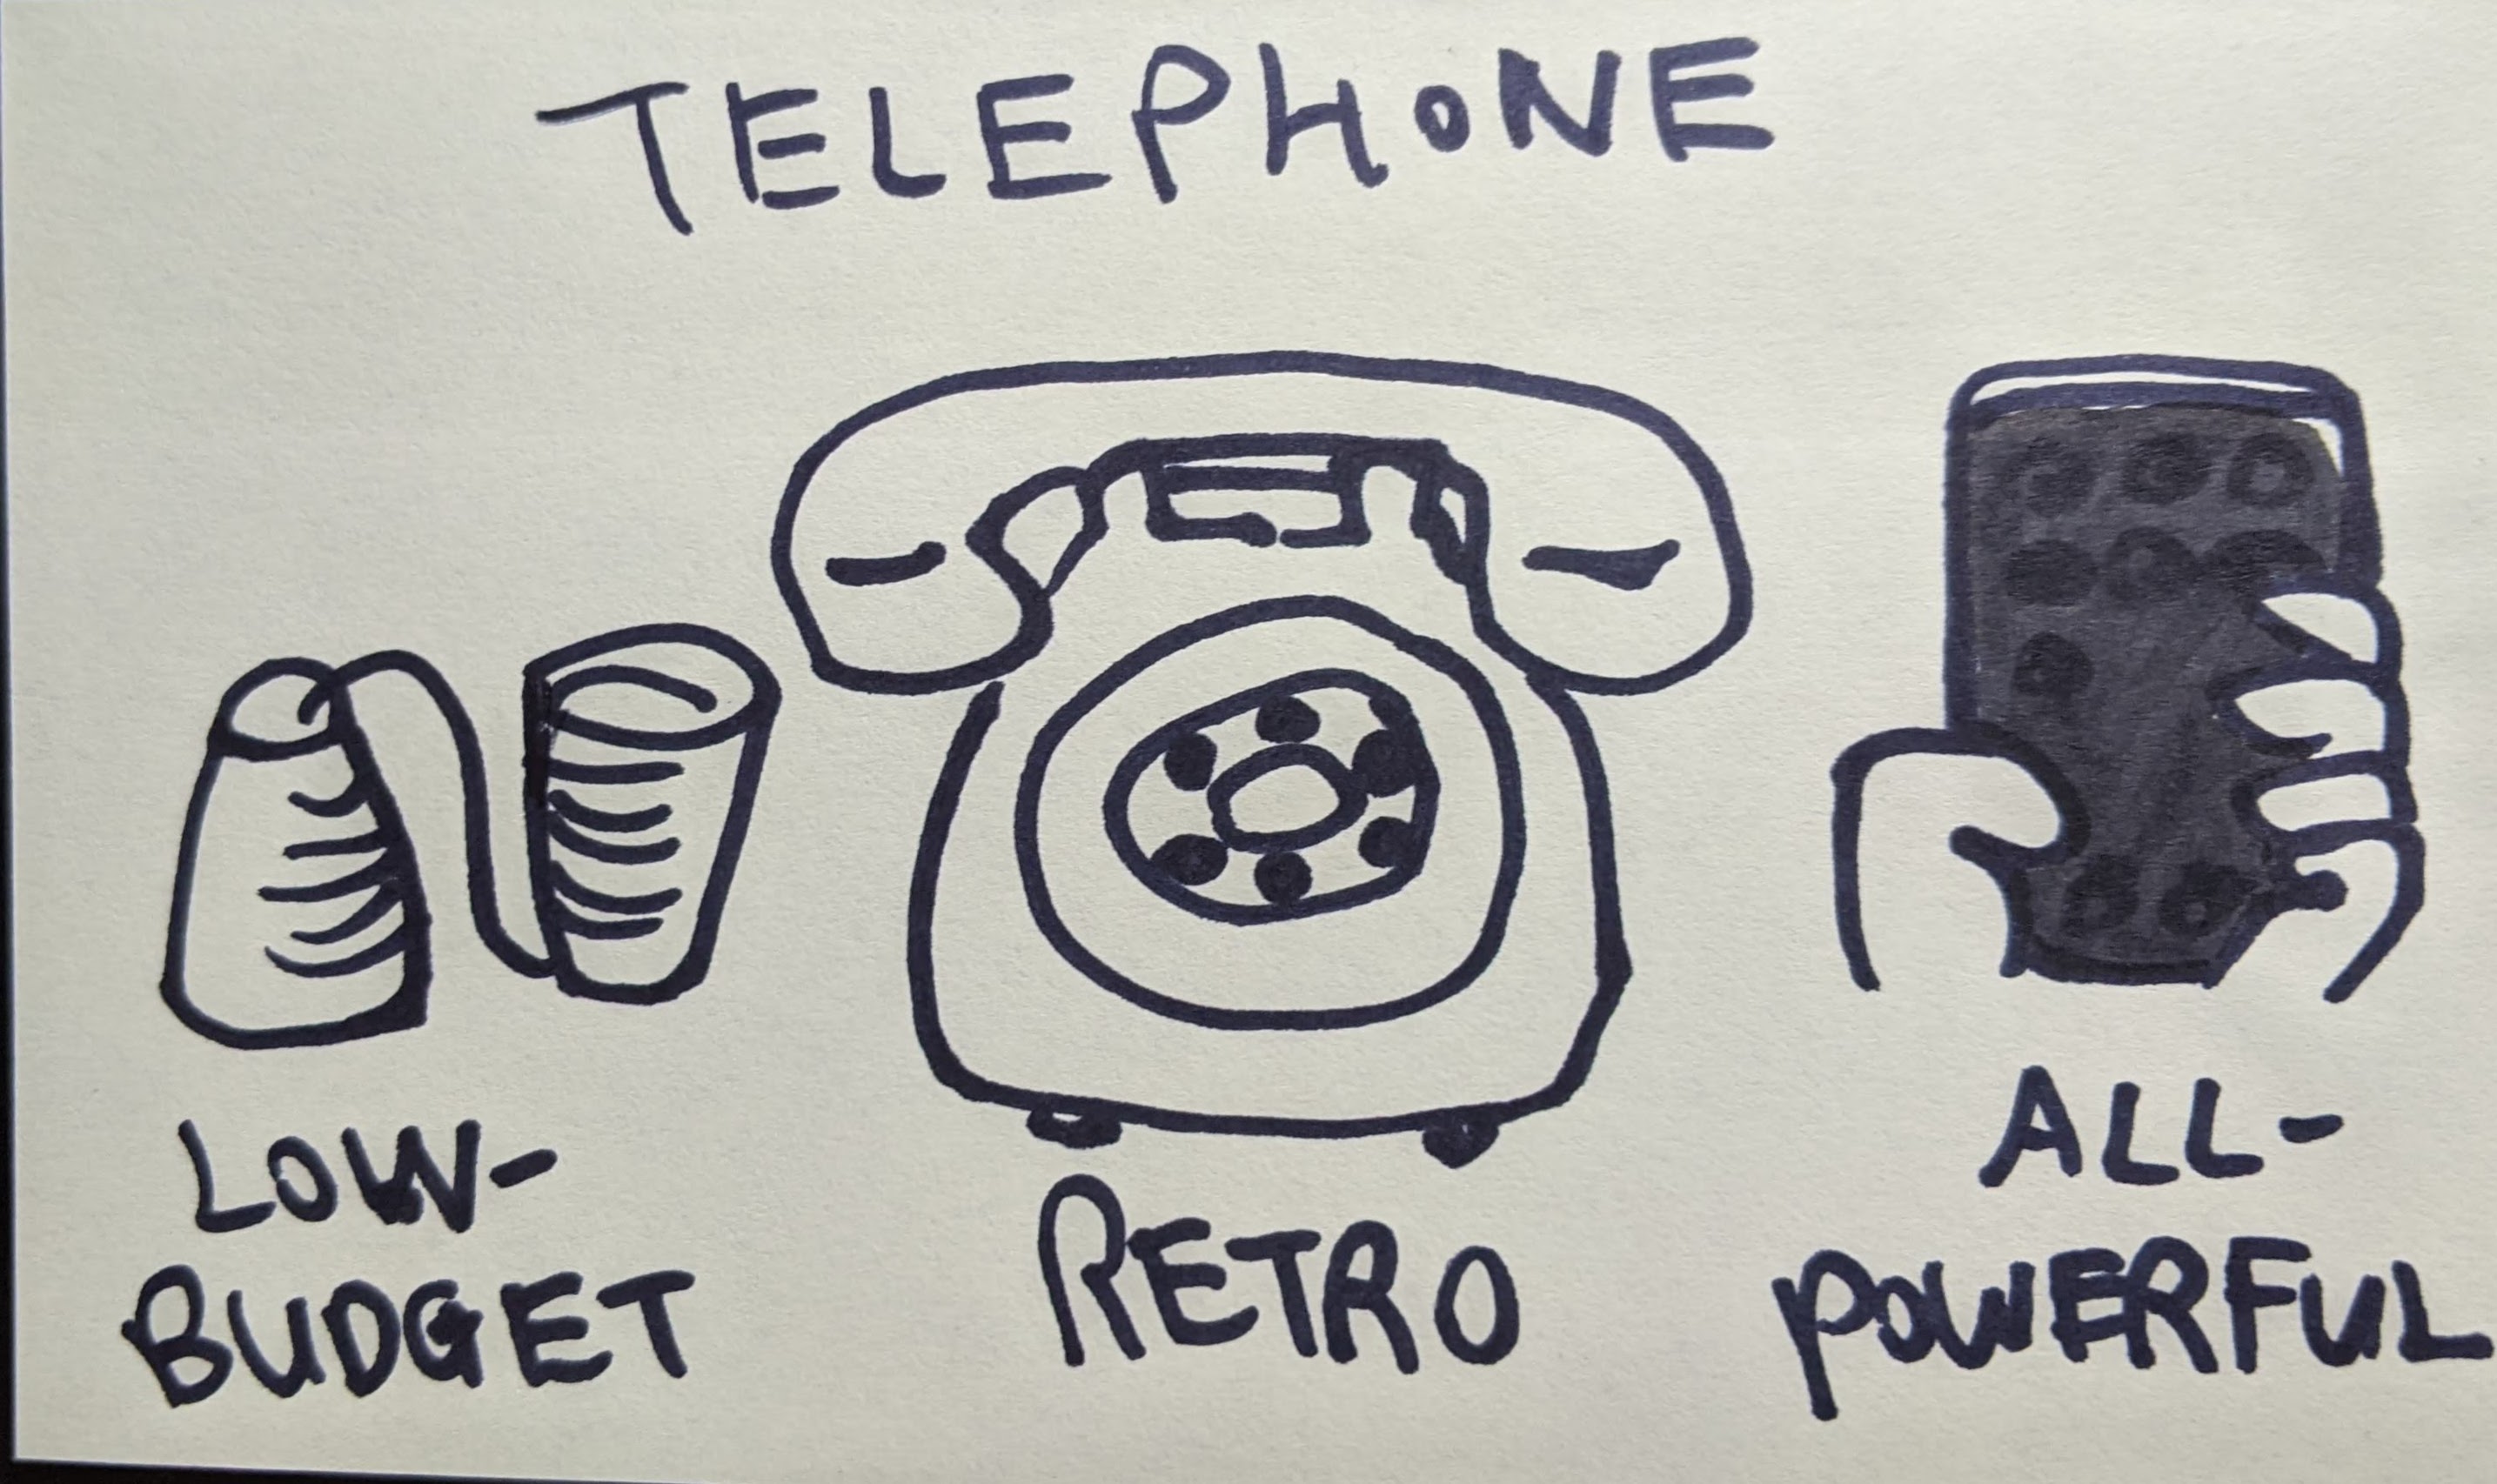 TELEPHONE
LOW-
BUDGET
RETRO
ALL-
POWERFUL